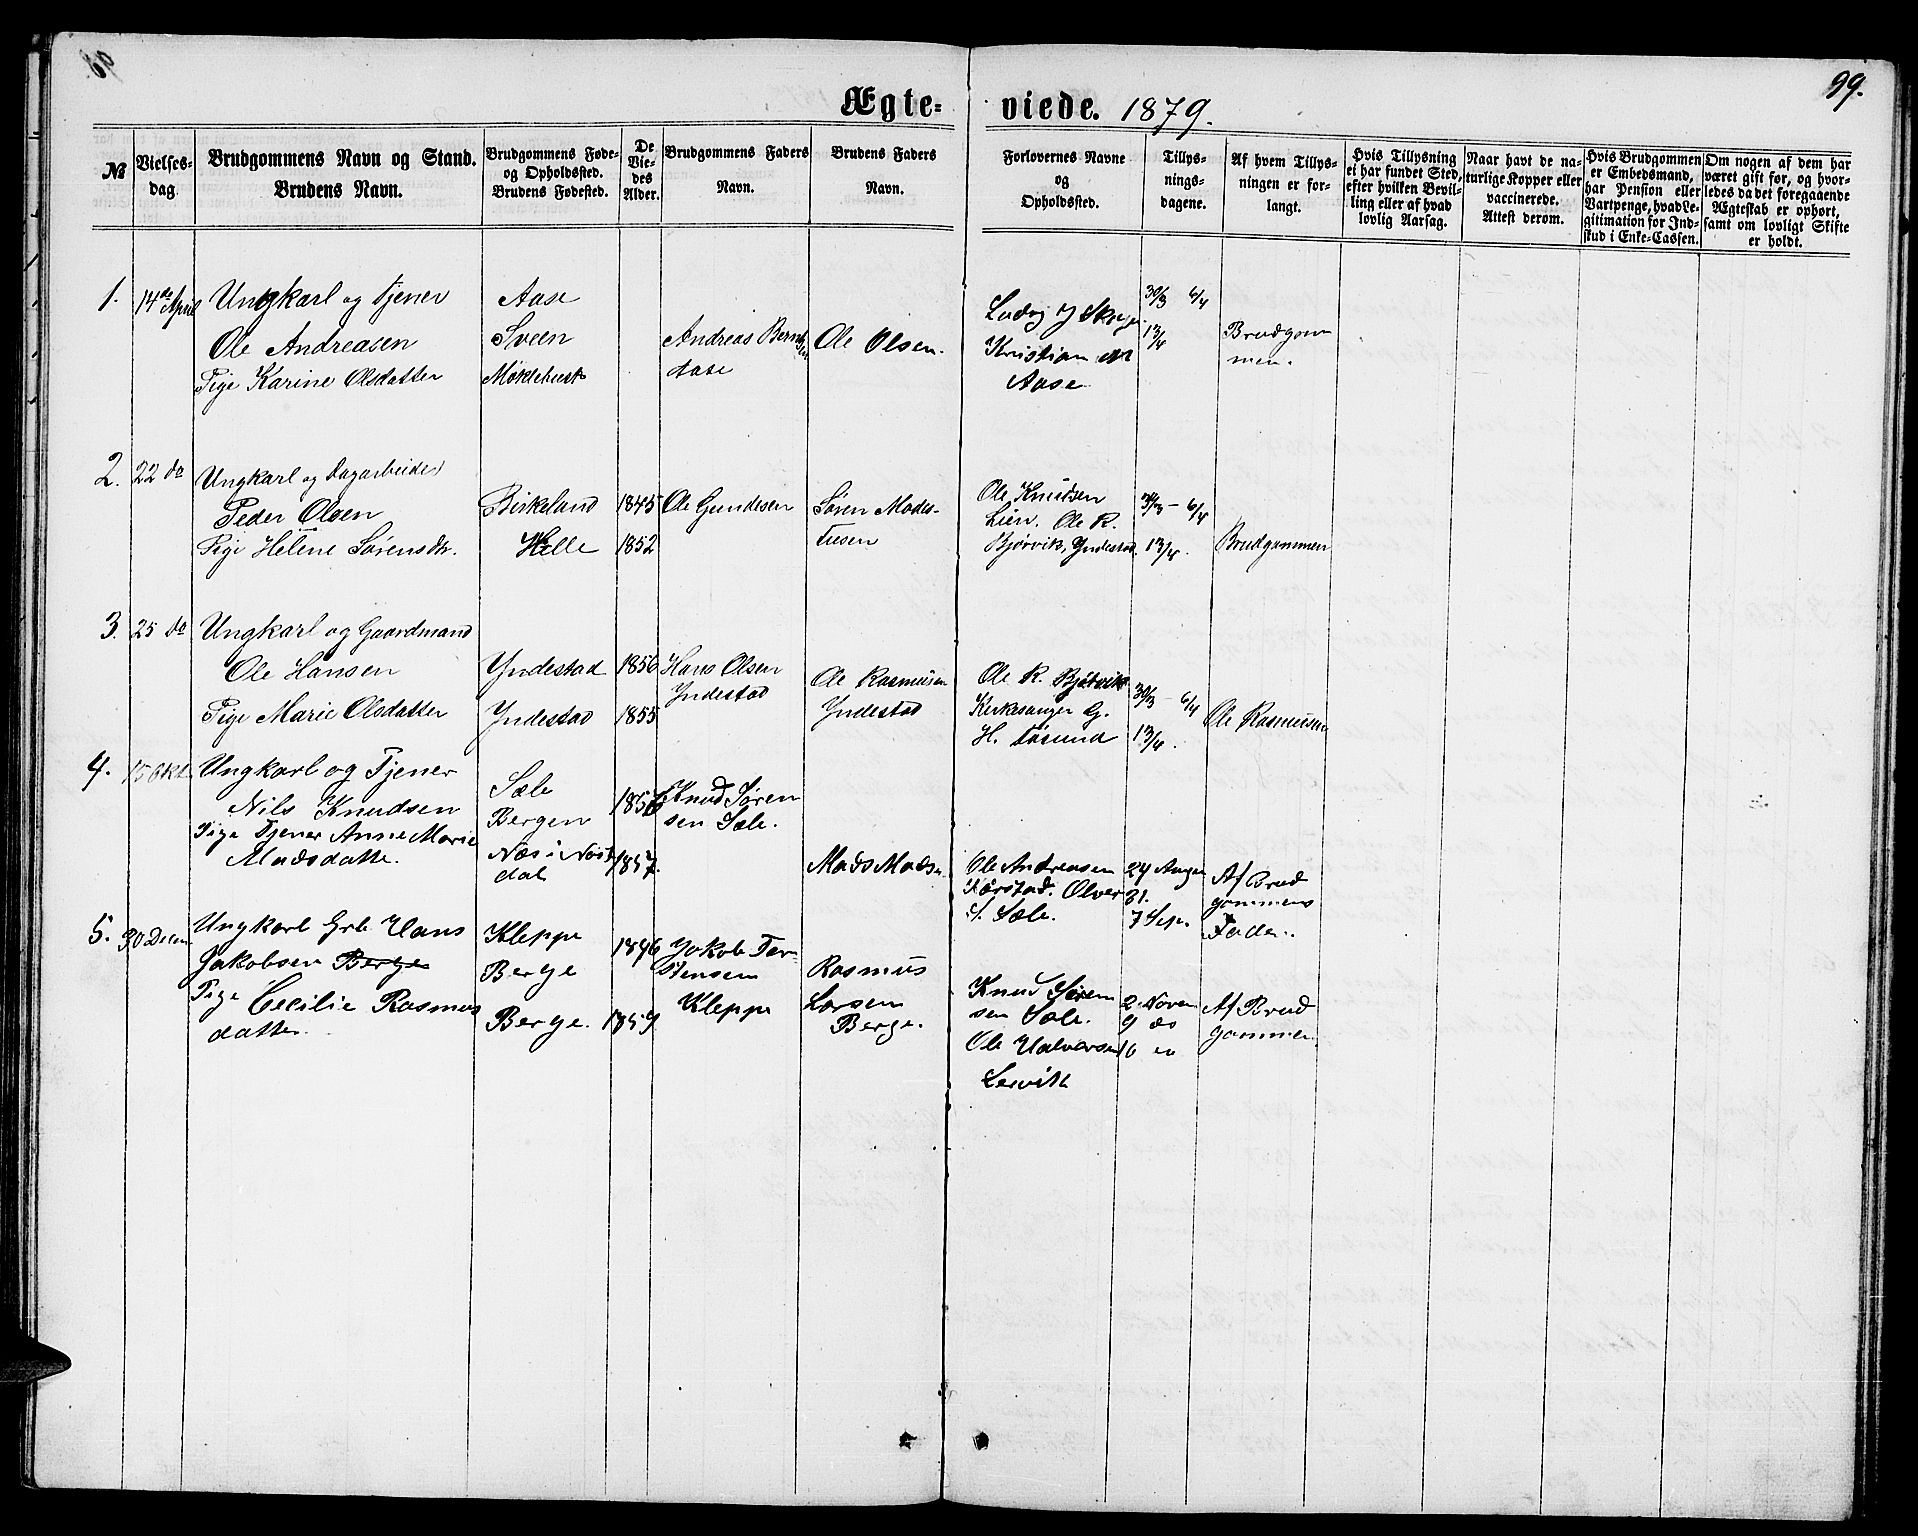 99.
Ægte-
viede. 1879.
№
Vielses-
dag
Brudgommens Navn og Stand.
Brudens Navn.
Brudgommens Føde-
og Opholdssted.
Brudens Fødested.
De
Vie-
des
Alder.
Brudgommens Faders
Navn.
Brudens Faders
Navn.
Forlovernes Navne
og
Opholdssted.
Tillys-
nings-
dagene.
Af hvem Tillys-
ningen er for-
langt.
Hvis Tillysning
ei har fundet Sted,
efter hvilken Bevil-
ling eller af hvad
lovlig Aarsag.
Naar havt de na-
turlige Kopper eller
vaccinerede.
Attest derom.
Hvis Brudgommen
er Embedsmand,
har Pension eller
Vartpenge, hvad Le-
gitimation for Ind-
skud i Enke-Cassen.
Om nogen af dem har
været gift før, og hvor-
ledes da det foregaaende
Ægteskab er ophørt,
samt om lovligt Skifte
er holdt.
1.
14de April
Ungkarl og Tjener
Ole Andreasen
Pige Karine Olsdatter
Aase
Sveen
Andreas
Aase
Ole Olsen.
Ludvig J
Kristian
Aase
30/3 6/4
13/4
Brudgom
men.
2.
22 do
Ungkarl og Dagarbeider
Peder Olsen
Pige Helene Sørensdtr.
Birkeland
Helle
1845
1852
Ole Gundesen
Søren Mads-
Ole Knudsen
Lien. Ole R.
Bjørvik, Yndestad
30/3 - 6/4
13/4.
Brudgommen
3.
25 do
Ungkarl og Gaardmand
Ole Hansen
Pige Marie Olsdatter
Yndestad
Yndestad
1856
1855
Hans Olsen
Yndestad
Ole Rasmusen
Yndestad
Ole R. Bjørvik
Kirkesanger G.
H.
30/3 - 6/4
13/4.
Ole Rasmusen
4.
15 Okt.
Ungkarl og Tjener
Nils Knudsen
Pige Tjener Anne Marie
Madsdatte.
Sæle
Bergen
Næs i
dal
1857.
Knud Søren
sen Sæle.
Mads Madsen
Ole Andreasen
Olver
S. Sæle.
24 Augu
31.
7 Sep.
Af Brud
gommens
Fader.
5.
30 Decem
Ungkarl Grb Hans
Jakobsen Berge
Pige Cecilie Rasmus
datter.
Kleppe
Berge
Berge.
1846
1859
Jakob Tor-
stensen
Kleppe
Rasmus
Larsen
Berge.
Knud Søren
sen Sæle.
Ole Halvorsen
Lervik
2. Novem
9 do
16 do
Af Brud
gommen